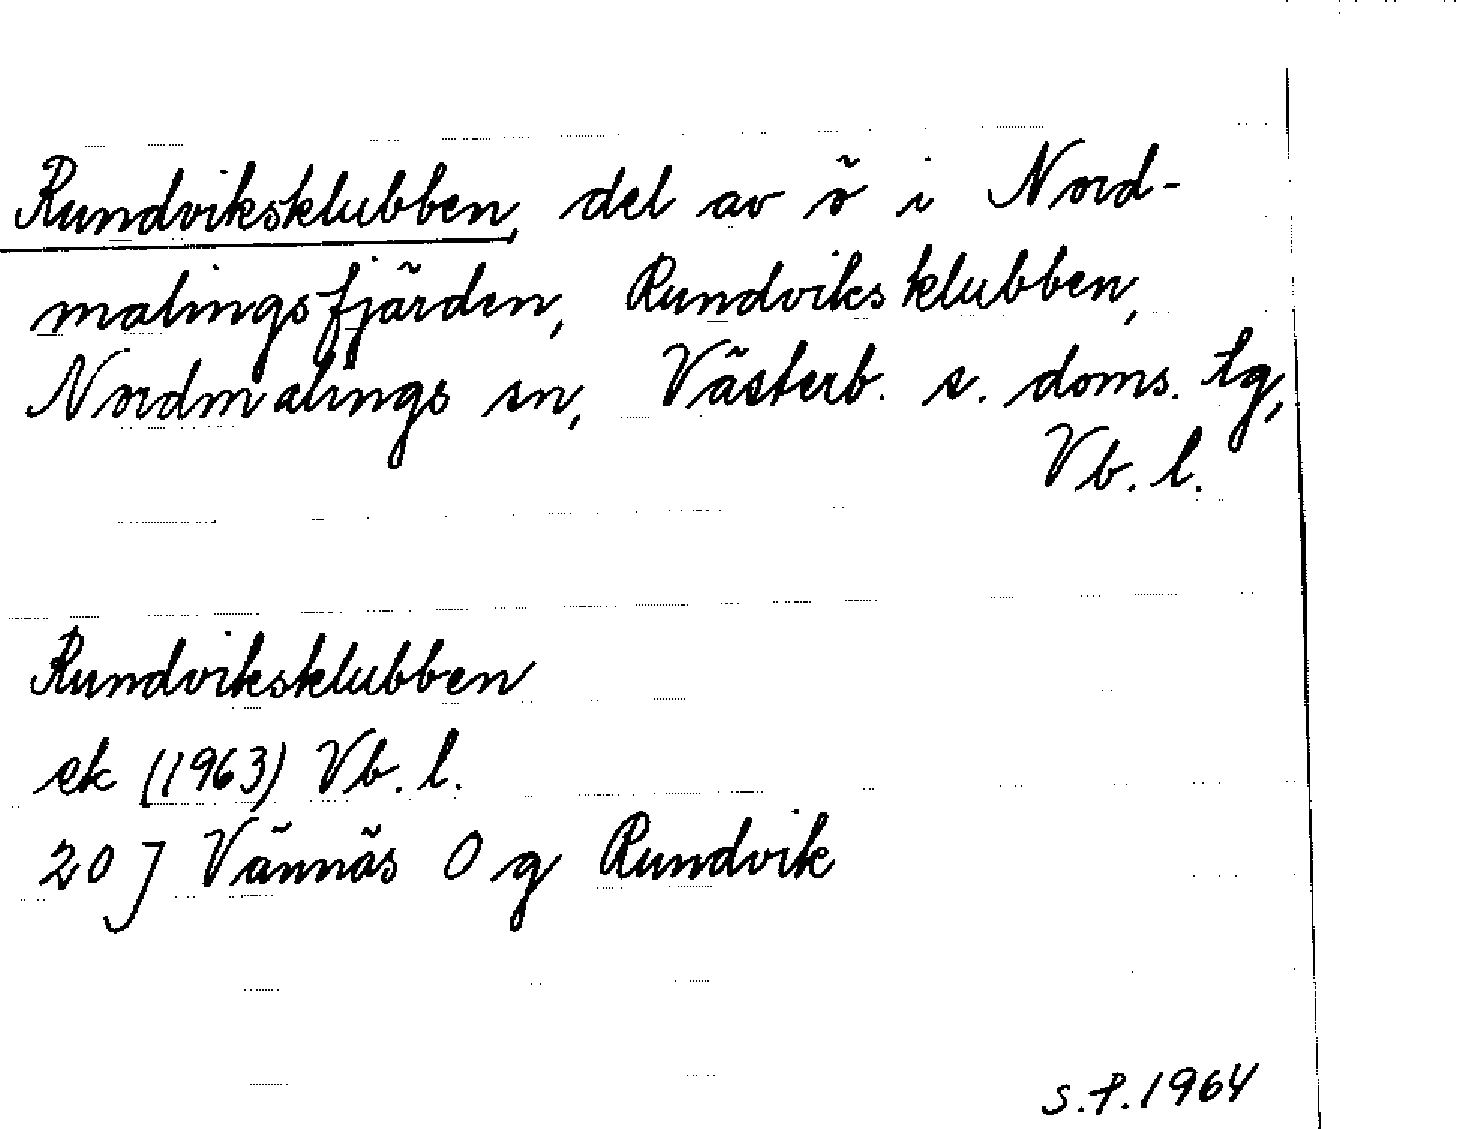 Rundviksklubben, del av ö i Nord-
malingsfjärden, Rundviksklubben,
Nordmalings sn, Västerb. s. doms. tg,
Vb. l.
Rundviksklubben
ek (1963) Vb. l.
20 J Vännäs 0 g Rundvik
S.P. 1964